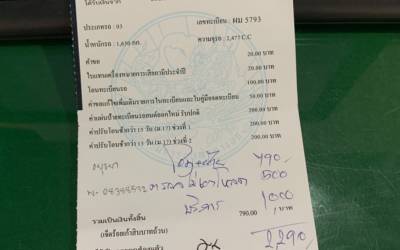 ได้รับเงินจาก
ประเภทรถ : 03 เลขทะเบียน : ผม 5793
น้ำหนักรถ : 1,630 กก. ความจุรถ : 2,477 C.C
ค่าขอ 20.00 บาท
ใบแทนเครื่องหมายการเสียภาษีประจำปี 20.00 บาท
โอนทะเบียนรถ 100.00 บาท
ค่าขอแก้ไขเพิ่มเติมรายการในทะเบียนและในคู่มือจดทะเบียน 50.00 บาท
ค่าแผ่นป้ายทะเบียนรถยนต์ออกใหม่ รับปกติ 200.00 บาท
ค่าปรับโอนช้ากว่า 15 วัน (ม.17) ช่วงที่ 1 200.00 บาท
ค่าปรับโอนช้ากว่า 15 วัน (ม.17) ช่วงที่ 2 200.00 บาท
790-
500
บริการ 1000
รวมเป็นเงินทั้งสิ้น 790.00 บาท
(เจ็ดร้อยเก้าสิบบาทถ้วน)
2290